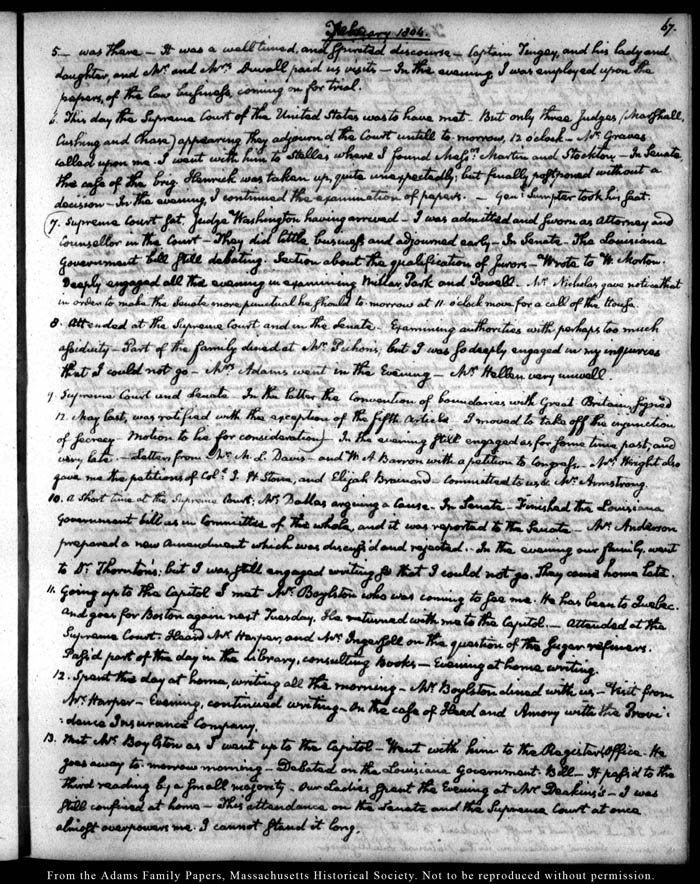 February 1804.
67.
5. — was there — It was a well timed, and spirited discourse — Captain Tingey, and his lady and
daughter, and Mr. and Mrs. Duvall paid us visits — In the evening I was employed upon the
papers, of the law business coming on for trial.
6. This day the Supreme Court of the United States was to have met. But only three Judges (Marshall,
Cushing and Chase) appearing they adjourn'd the Court untill to morrow, 12 o'clock — Mr. Graves
called upon me. I went with him to Stelle's where I found Messrs. Martin and Stockton — In Senate
the case of the brig. Henrick was taken up, quite unexpectedly; but finally postponed without a
decision — In the evening, I continued the examination of papers. — Genl. Sumpter took his seat.
7. Supreme Court sat. Judge Washington having arrived — I was admitted and sworn as Attorney and
Counsellor in the Court — They did little business and adjourned early — In Senate — The Louisiana
Government bill still debating. Section about the qualification of Jurors — Wrote to W. Morton.
Deeply engaged all the evening in examining Millar, Park and Powell. — Mr. Nicholas, gave notice that
in order to make the Senate more punctual he should to-morrow at 11 o'clock move for a call of the House.
8. Attended at the Supreme Court and in the Senate. Examining authorities with perhaps too much
assiduity — Part of the family dined at Mr. Pichon's, but I was so deeply engaged in my inquiries
that I could not go — Mrs. Adams went in the Evening — Mr. Hellen very unwell.
9. Supreme Court and Senate. In the latter the Convention of boundaries with Great Britain, signed
12. May last, was ratified with the exception of the fifth Article. I moved to take off the injunction
of secrecy. Motion to lie for consideration) — In the evening still engaged as for some time past, and
very late. — Letters from Mr. M. L. Davis — and W. A Barron with a petition to Congress. — Mr. Wright also
gave me the petitions of Coll. J. H Stone, and Elijah Brainard — Committed to us & Mr. Armstrong.
10. A short time at the Supreme Court; Mr. Dallas arguing a Cause. In Senate — Finished the Louisiana
Government bill as in Committee of the whole, and it was reported to the Senate — Mr. Anderson
prepared a new Amendment which was discuss'd and rejected. — In the evening our family, went
to Dr. Thornton's: but I was still engaged writing so that I could not go. They came home late.
11. Going up to the Capitol I met Mr. Boylston who was coming to see me. He has been to Quebec.
And goes for Boston again next Tuesday. He returned with me to the Capitol. — Attended at the
Supreme Court. Heard Mr. Harper, and Mr. Ingersoll on the question of the Sugar refiners.
Pass'd part of the day in the Library, consulting Books — Evening at home writing.
12. Spent this day at home, writing all the morning — Mr. Boylston dined with us — Visit from
Mr. Harper — Evening, continued writing — On the case of Head and Amory with the Provi-
:dence Insurance Company.
13. Met Mr. Boylston as I went up to the Capitol — Went with him to the Register's Office. He
goes away to-morrow morning — Debated on the Louisiana Government Bill — It pass'd to the
third reading by a small majority. Our Ladies spent the Evening at Mr. Deakins's — I was
still confined at home — This attendance on the Senate and the Supreme Court at once
almost overpowers me. I cannot stand it long.
From the Adams Family Papers, Massachusetts Historical Society. Not to be reproduced without permission.